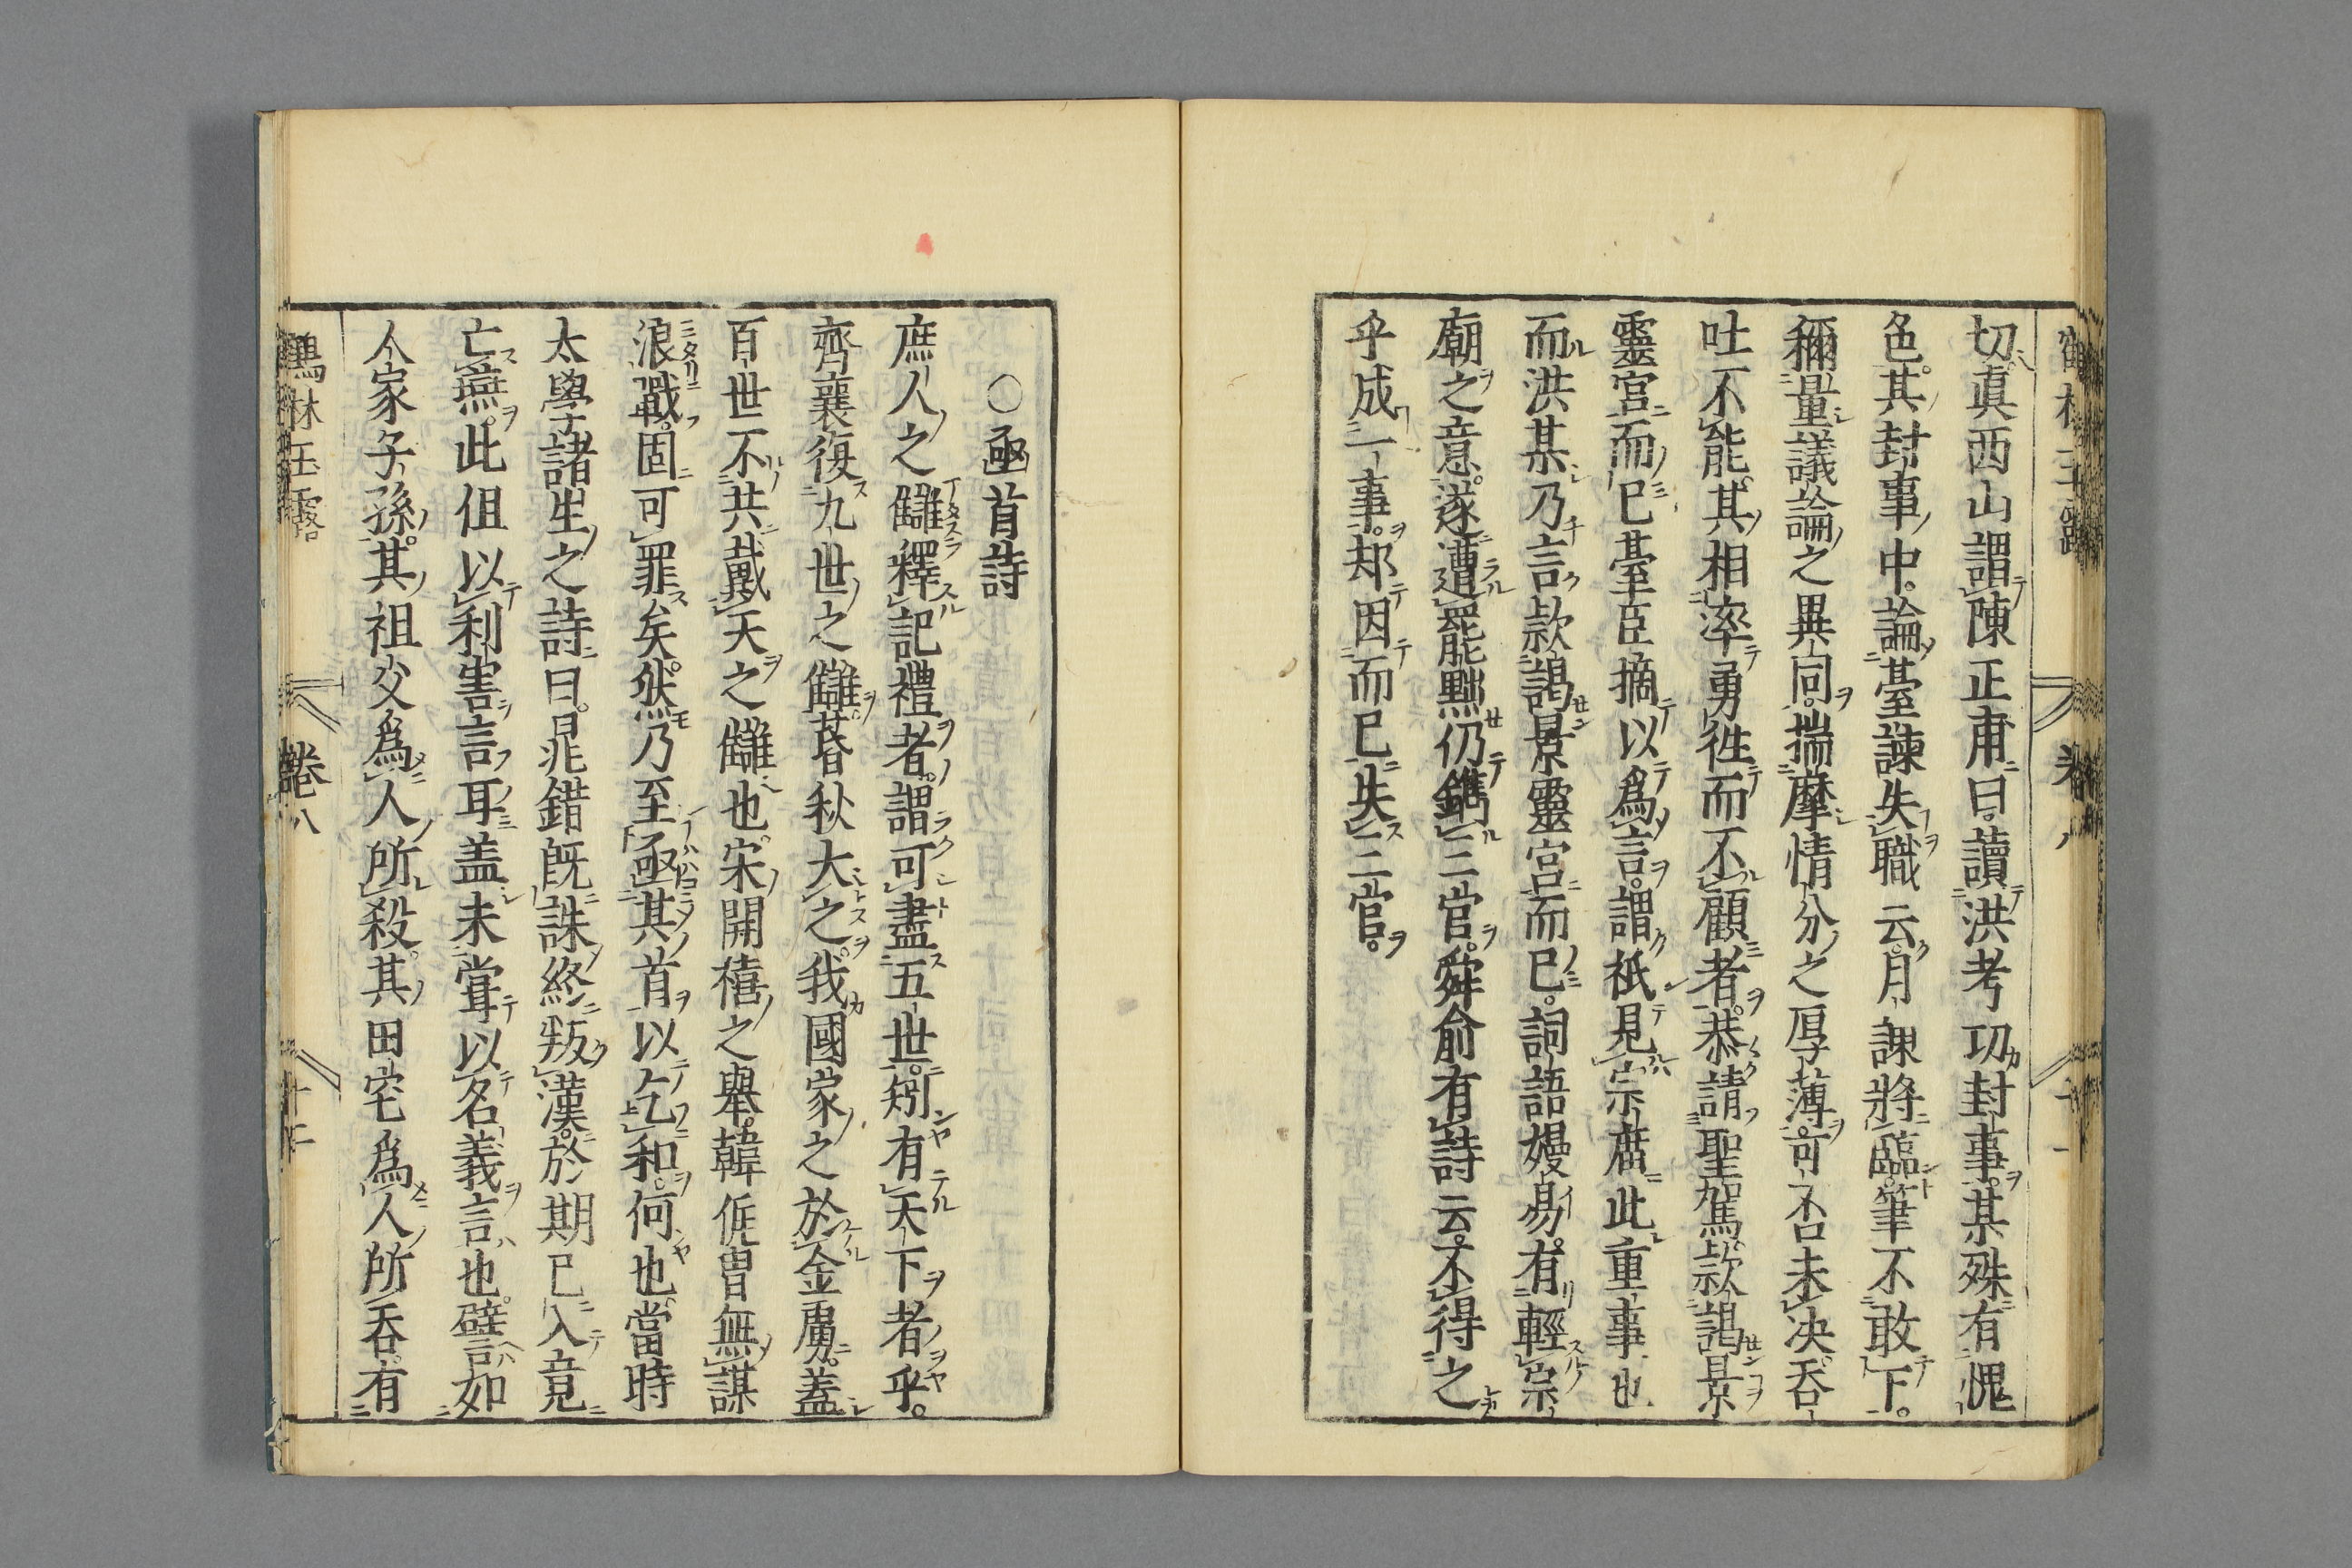 鶴林玉露　卷八　十一
切眞西山謂陳正甫曰讀洪考功封事某殊有愧
色其封事中論臺諫失職云月課將臨筆不敢下
稱量議論之異同揣摩情分之厚薄可否未决吞
吐不能其相率勇徃而不顧者恭請聖駕款謁景
靈宮而已臺臣摘以爲言謂祇見宗廟此重事也
而洪某乃言款謁景靈宮而已詞語嫚易有輕宗
廟之意遂遭罷黜仍鐫三官舜俞有詩云不得之
乎成一事却因而已失三官
○函首詩
庶人之讎釋記禮者謂可盡五世矧有天下者乎
齊襄復九世之讎春秋大之我國家之於金虜蓋
百世不共戴天之讎也宋開禧之舉韓侂冑無謀
浪戰固可罪矣然乃至函其首以乞和何也當時
太學諸生之詩曰晁錯旣誅終叛漢於期已入竟
亡燕此但以利害言耳盖未甞以名義言也譬如
人家子孫其祖父爲人所殺其田宅爲人所吞有
鶴林玉露　卷八　十二